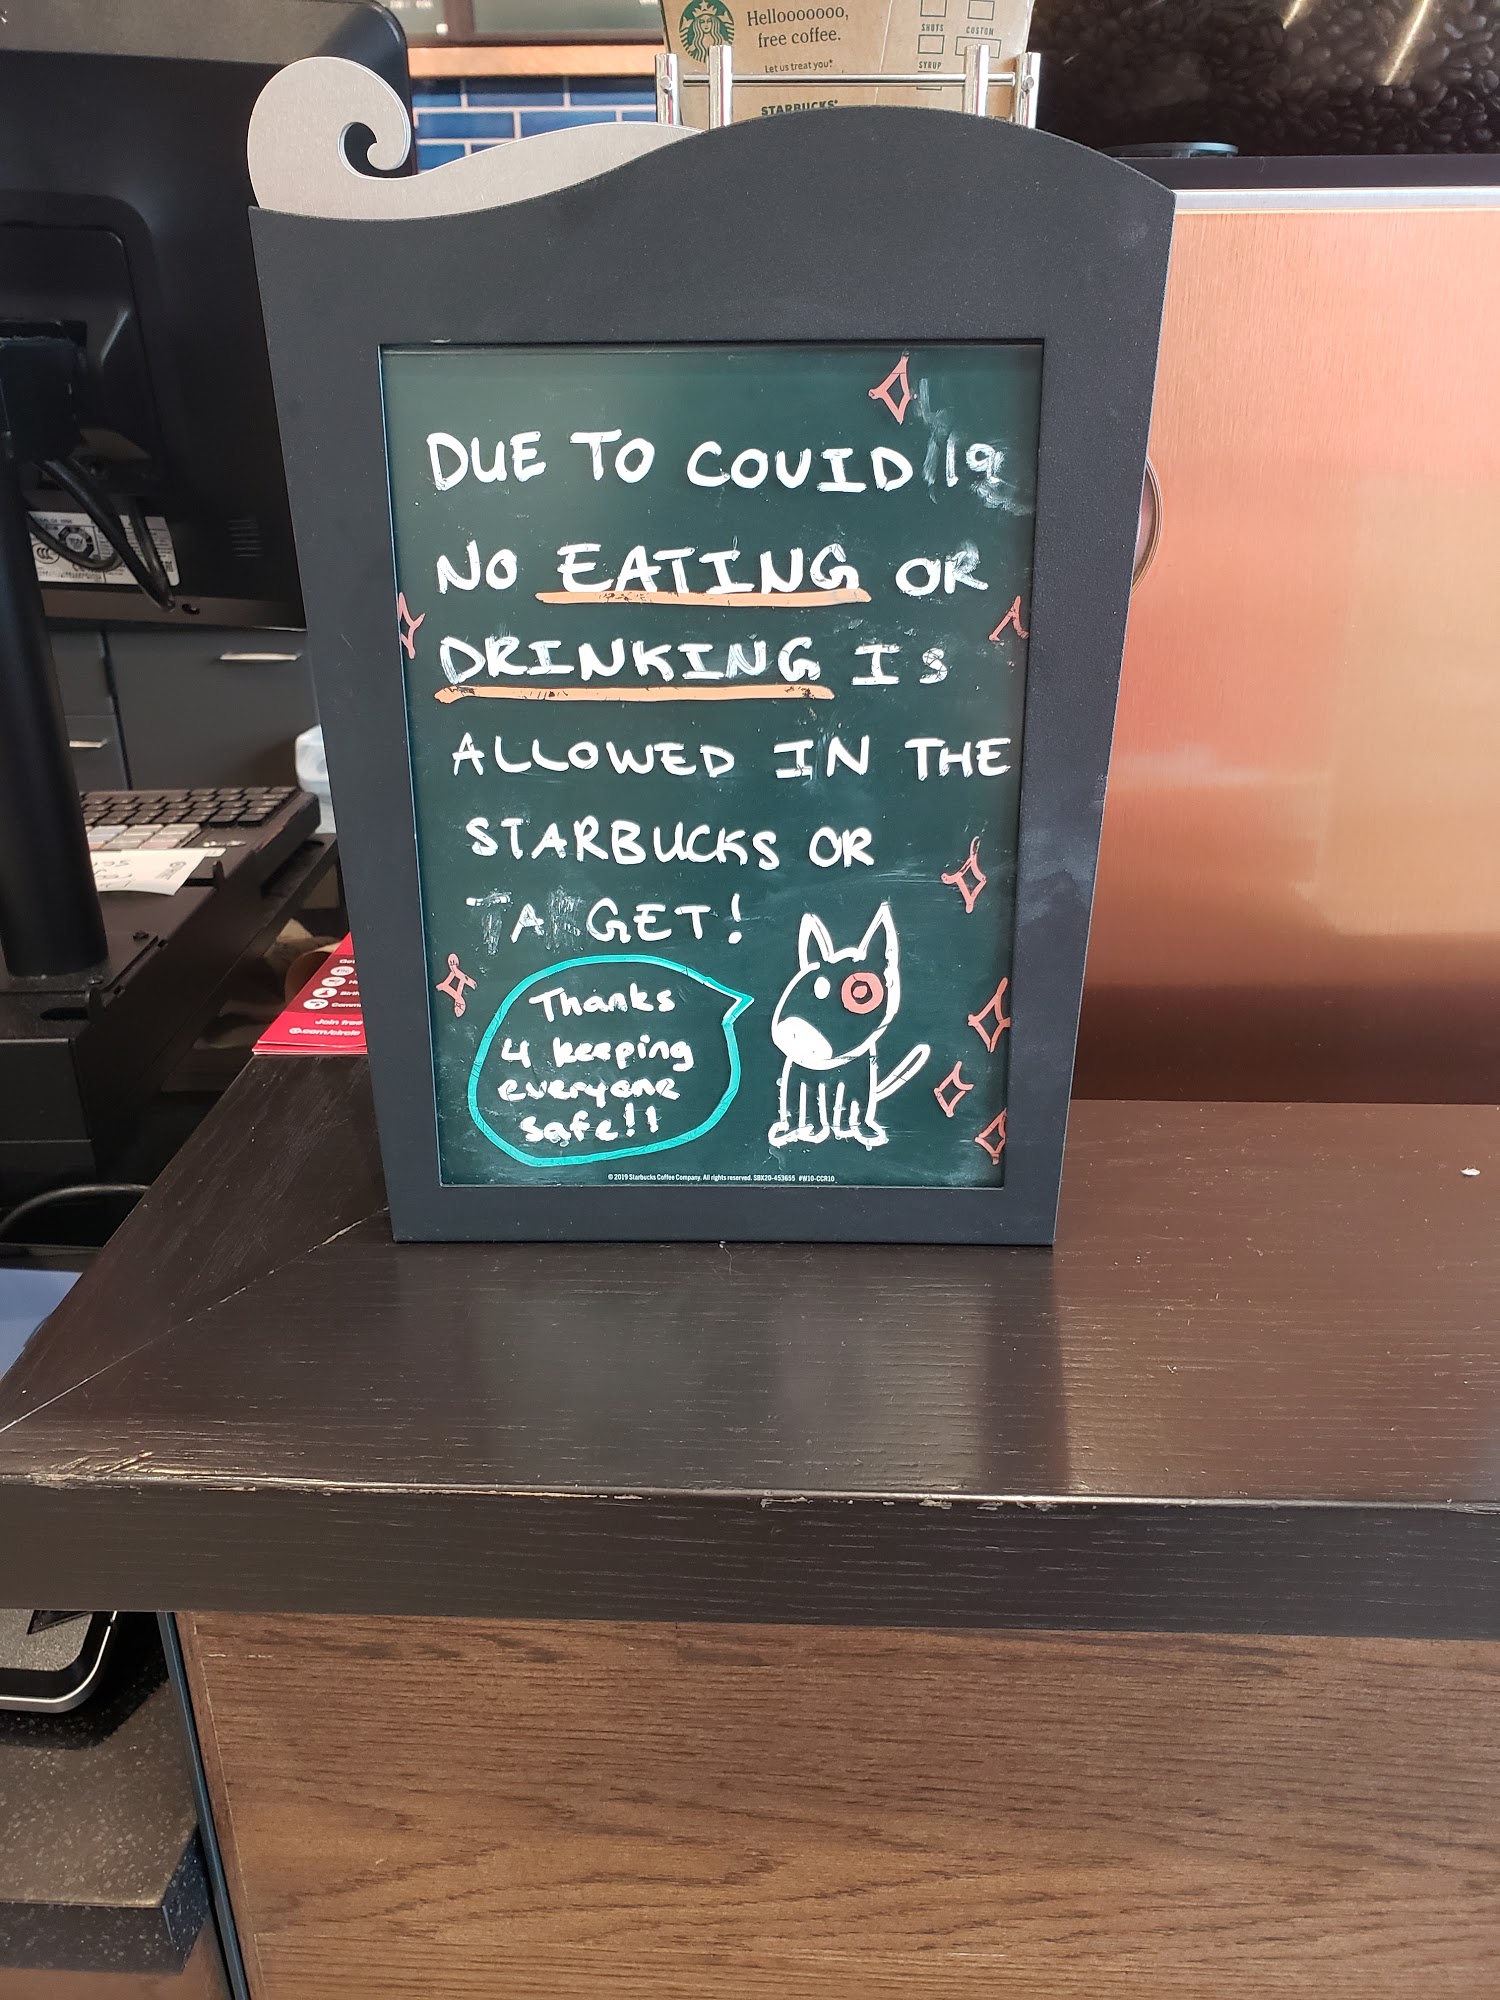 Hellooooooo,
free coffee.
Let us treat you*
STARBUCKS*
SHOTS
CUSTOM
SYRUP
DUE TO COVID 19
NO EATING OR
DRINKING IS
ALLOWED IN THE
STARBUCKS OR
TA GET!
Thanks
4 keeping
everyone
safe!!
© 2019 Starbucks Coffee Company. All rights reserved. SBX20-453655 #W10-CCR10
Join free